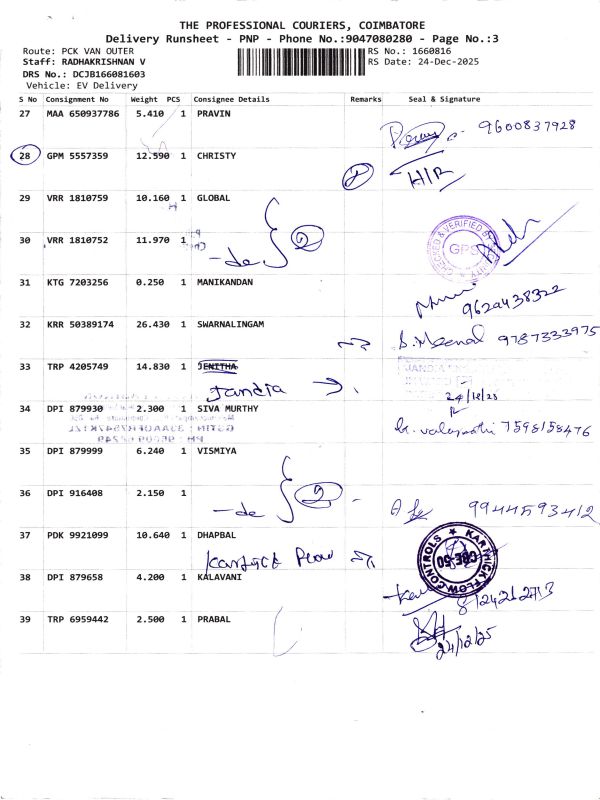 THE PROFESSIONAL COURIERS, COIMBATORE
Delivery Runsheet - PNP - Phone No.:9047080280 - Page No.:3
Route: PCK VAN OUTER
RS No.: 1660816
Staff: RADHAKRISHNAN V
RS Date: 24-Dec-2025
DRS No.: DCJB166081603
Vehicle: EV Delivery
S No Consignment No Weight PCS Consignee Details Remarks Seal & Signature
27 MAA 650937786 5.410 1 PRAVIN
9600837928
28 GPM 5557359 12.590 1 CHRISTY
H/R
29 VRR 1810759 10.160 1 GLOBAL
30 VRR 1810752 11.970 1
-do 2
GPS
31 KTG 7203256 0.250 1 MANIKANDAN
9629438322
32 KRR 50389174 26.430 1 SWARNALINGAM
9787333975
33 TRP 4205749 14.830 1 JENITHA
Jandia
24/12/25
34 DPI 879930 2.300 1 SIVA MURTHY
7598158476
35 DPI 879999 6.240 1 VISMIYA
36 DPI 916408 2.150 1
-do 2
9944593412
37 PDK 9921099 10.640 1 DHAPBAL
KARMICK FLOW CONTROLS
CBE-50
38 DPI 879658 4.200 1 KALAVANI
8124262713
39 TRP 6959442 2.500 1 PRABAL
24/12/25